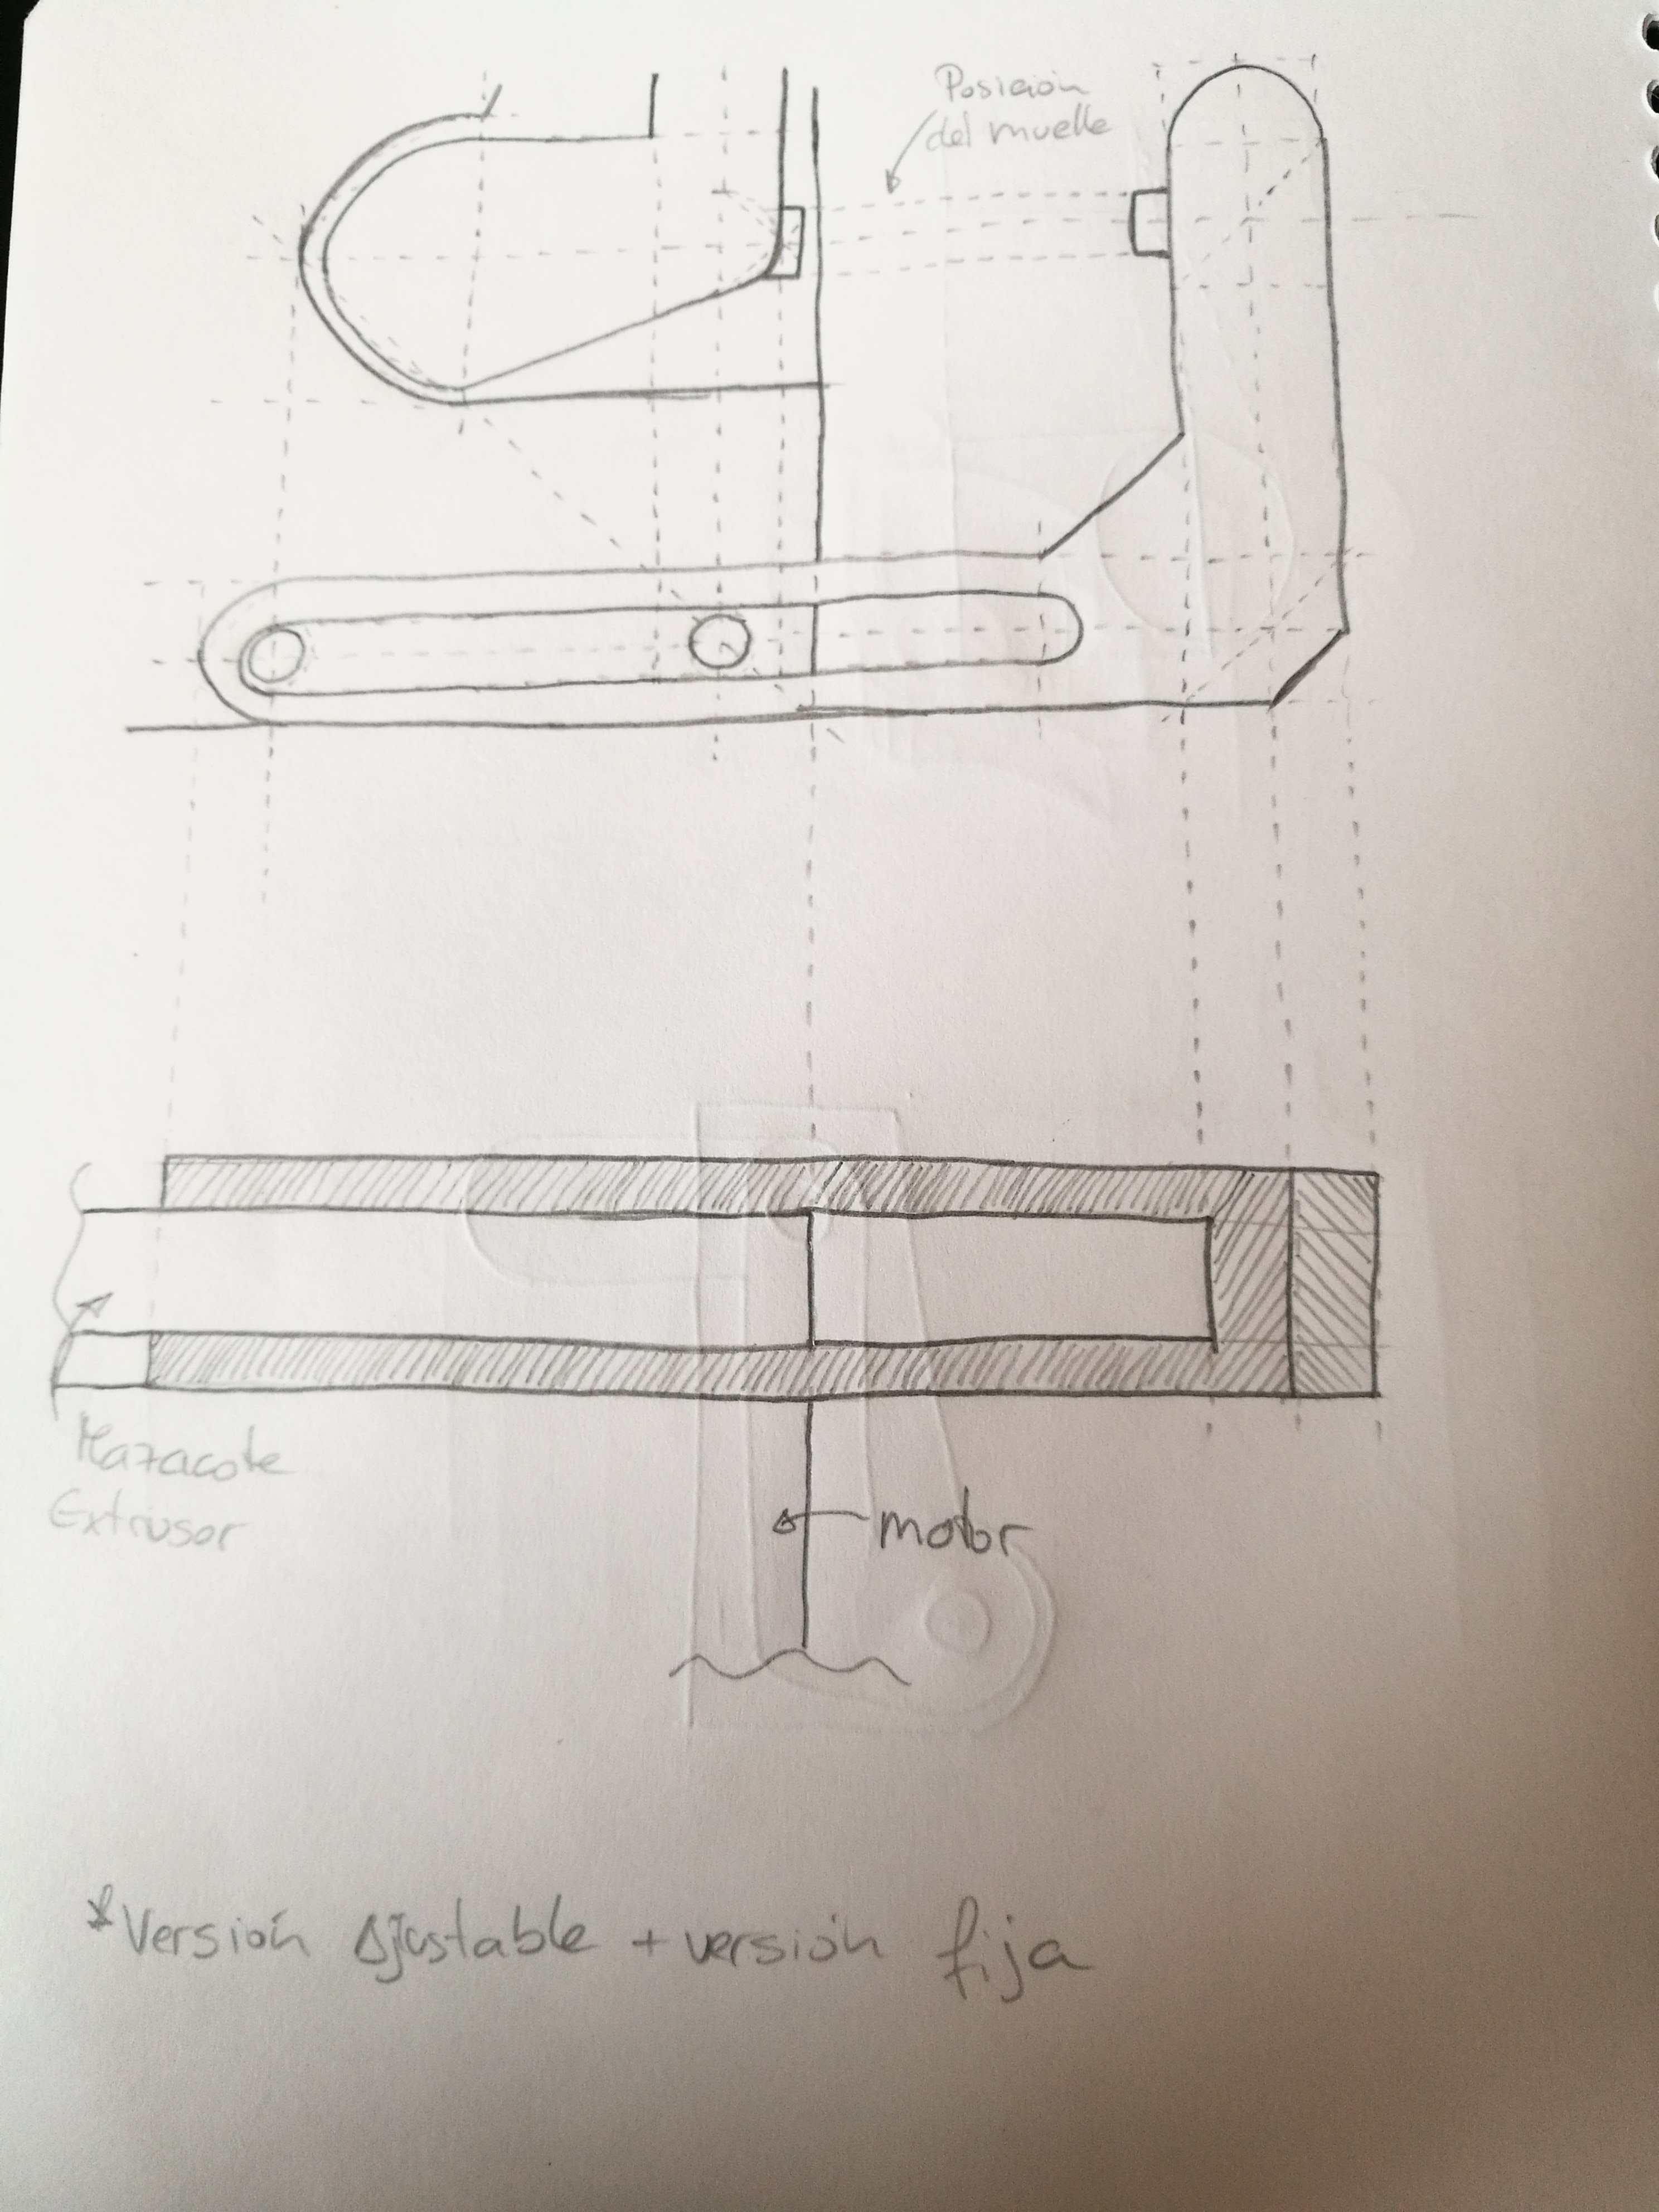 Posición
del muelle
Mazacote
Extrusor
motor
*Versión Ajustable + versión fija